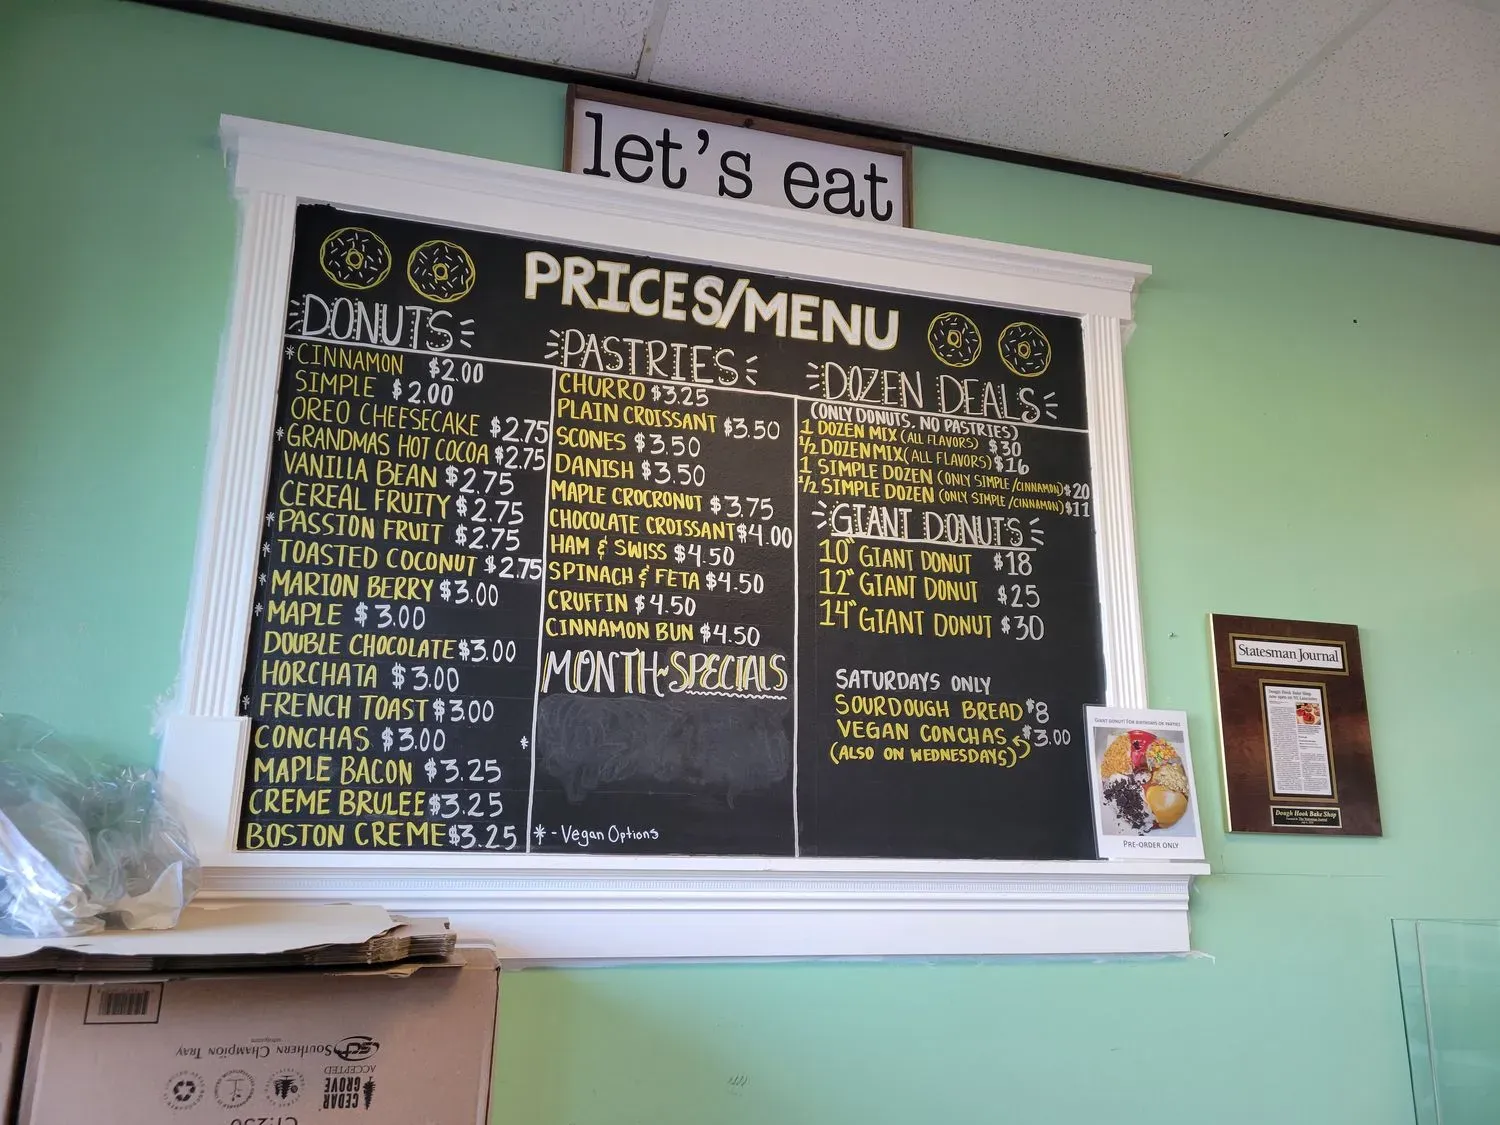 let's eat
PRICES/MENU
DONUTS
*CINNAMON $2.00
SIMPLE $2.00
OREO CHEESECAKE $2.75
*GRANDMAS HOT COCOA $2.75
VANILLA BEAN $2.75
CEREAL FRUITY $2.75
*PASSION FRUIT $2.75
*TOASTED COCONUT $2.75
*MARION BERRY $3.00
*MAPLE $3.00
DOUBLE CHOCOLATE $3.00
HORCHATA $3.00
*FRENCH TOAST $3.00
CONCHAS $3.00 *
MAPLE BACON $3.25
CREME BRULEE $3.25
BOSTON CREME $3.25
PASTRIES
CHURRO $3.25
PLAIN CROISSANT $3.50
SCONES $3.50
DANISH $3.50
MAPLE CROCRONUT $3.75
CHOCOLATE CROISSANT $4.00
HAM & SWISS $4.50
SPINACH & FETA $4.50
CRUFFIN $4.50
CINNAMON BUN $4.50
MONTH-SPECIALS
* - Vegan Options
DOZEN DEALS
(ONLY DONUTS, NO PASTRIES)
1 DOZEN MIX (ALL FLAVORS) $30
1/2 DOZEN MIX (ALL FLAVORS) $16
1 SIMPLE DOZEN (ONLY SIMPLE/CINNAMON) $20
1/2 SIMPLE DOZEN (ONLY SIMPLE/CINNAMON) $11
GIANT DONUTS
10" GIANT DONUT $18
12" GIANT DONUT $25
14" GIANT DONUT $30
SATURDAYS ONLY
SOURDOUGH BREAD $8
VEGAN CONCHAS $3.00
(ALSO ON WEDNESDAYS)
GIANT DONUT! FOR BIRTHDAYS OR PARTIES
PRE-ORDER ONLY
Statesman Journal
Dough Hook Bake Shop
now open on
Dough Hook Bake Shop
Southern Champion Tray
SCT
ACCEPTED
CEDAR
GROVE